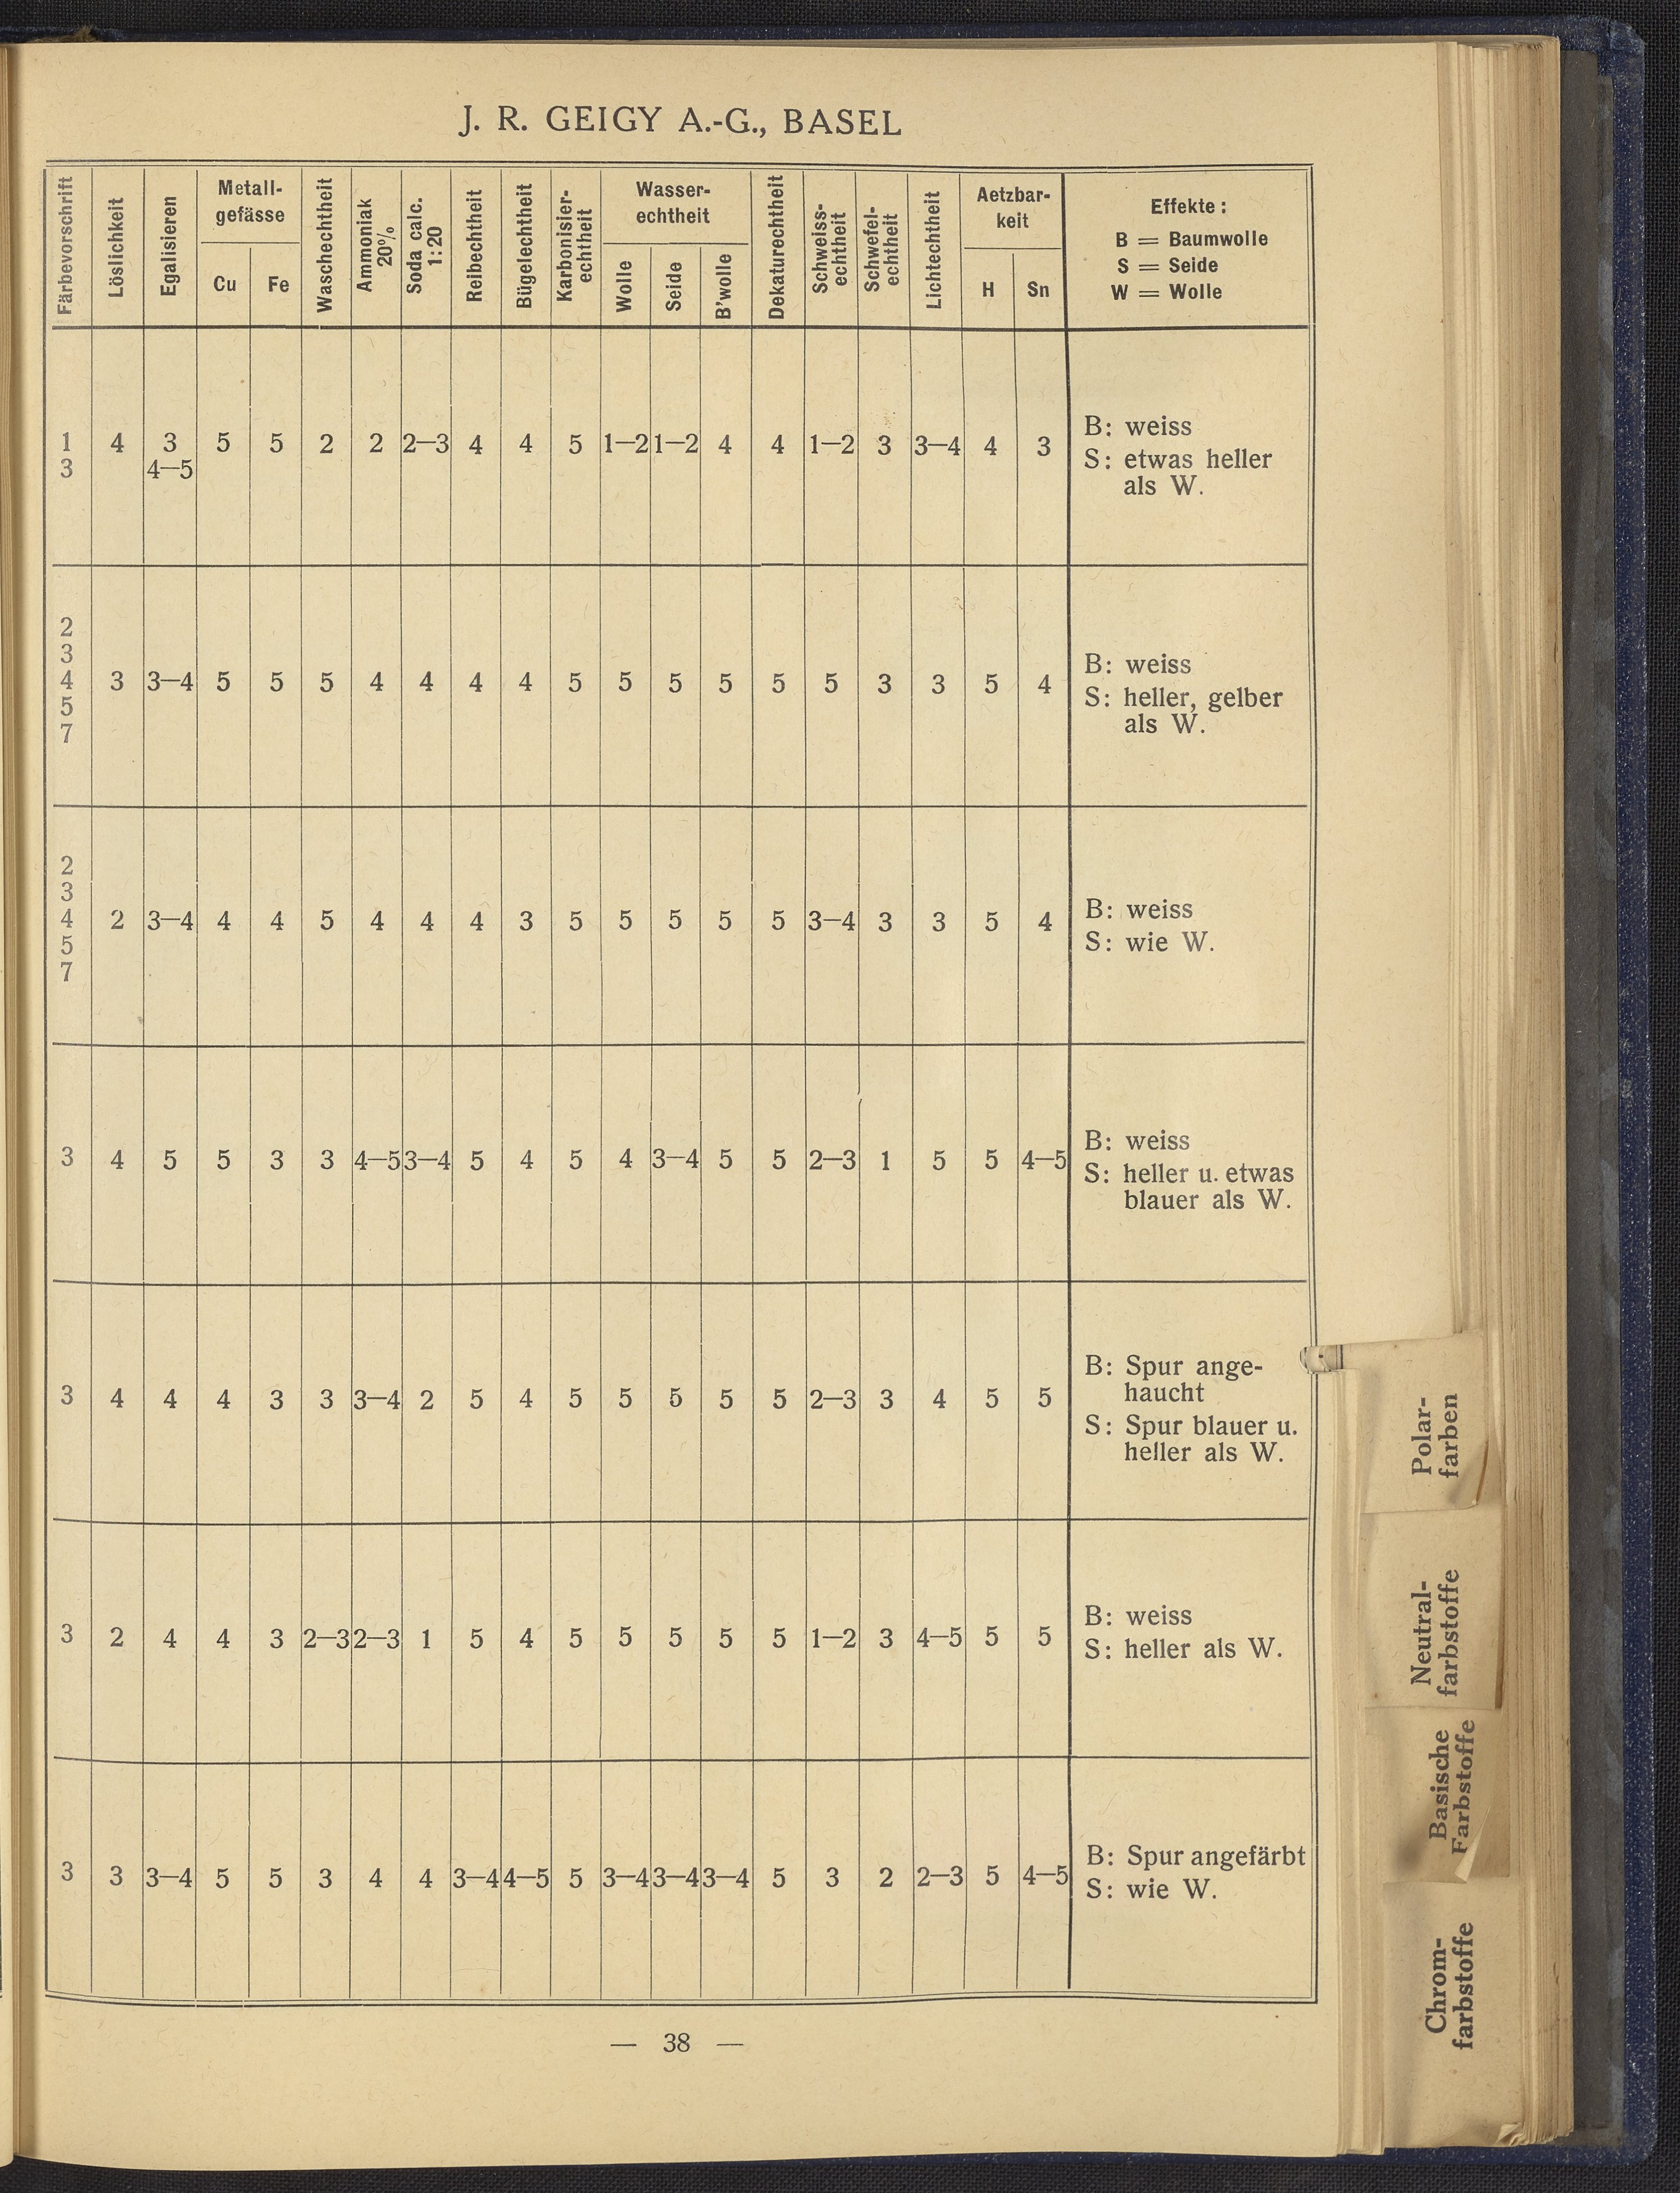 J. R. GEIGY A.-G., BASEL
Färbevorschrift
Löslichkeit
Egalisieren
Metall-
gefässe
Cu Fe
Waschechtheit
Ammoniak
20%
Soda calc.
1:20
Reibechtheit
Bügelechtheit
Karbonisier-
echtheit
Wasser-
echtheit
Wolle
Seide
B'wolle
Dekaturechtheit
Schweiss-
echtheit
Schwefel-
echtheit
Lichtechtheit
Aetzbar-
keit
H Sn
Effekte:
B = Baumwolle
S = Seide
W = Wolle
1 4 3 5 5 2 2 2—3 4 4 5 1—2 1—2 4 4 1—2 3 3—4 4 3
3 4—5
B: weiss
S: etwas heller
als W.
2
3
4 3 3—4 5 5 5 4 4 4 4 5 5 5 5 5 5 3 3 5 4
5
7
B: weiss
S: heller, gelber
als W.
2
3
4 2 3—4 4 4 5 4 4 4 3 5 5 5 5 5 3—4 3 3 5 4
5
7
B: weiss
S: wie W.
3 4 5 5 3 3 4—5 3—4 5 4 5 4 3—4 5 5 2—3 1 5 5 4—5
B: weiss
S: heller u. etwas
blauer als W.
3 4 4 4 3 3 3—4 2 5 4 5 5 5 5 5 2—3 3 4 5 5
B: Spur ange-
haucht
S: Spur blauer u.
heller als W.
3 2 4 4 3 2—3 2—3 1 5 4 5 5 5 5 5 1—2 3 4—5 5 5
B: weiss
S: heller als W.
3 3 3—4 5 5 3 4 4 3—4 4—5 5 3—4 3—4 3—4 5 3 2 2—3 5 4—5
B: Spur angefärbt
S: wie W.
— 38 —
Polar-
farben
Neutral-
farbstoffe
Basische
Farbstoffe
Chrom-
farbstoffe